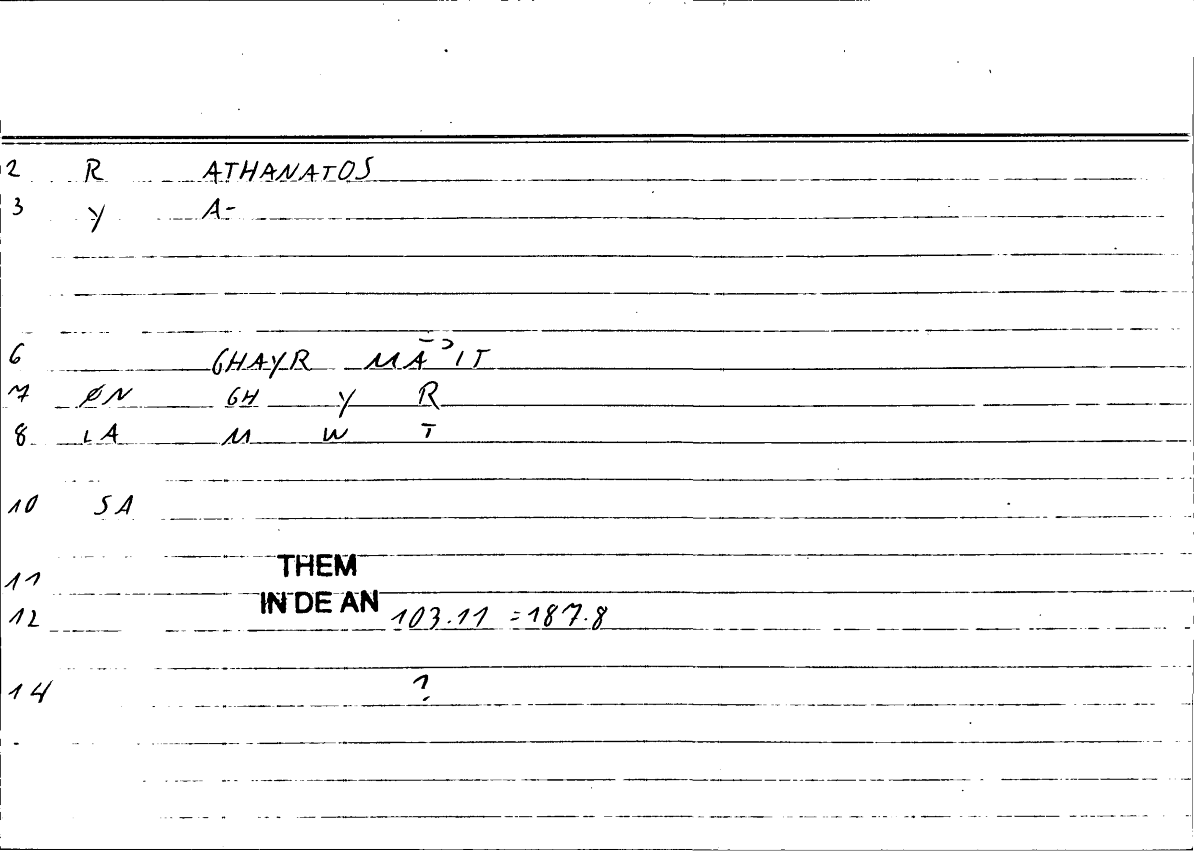 2 R ATHANATOS
3 Y A-
6 GHAYR MĀʾIT
7 ØN GH Y R
8 LA M W T
10 SA
11 THEM
12 IN DE AN 103.11 = 187.8
14 ?